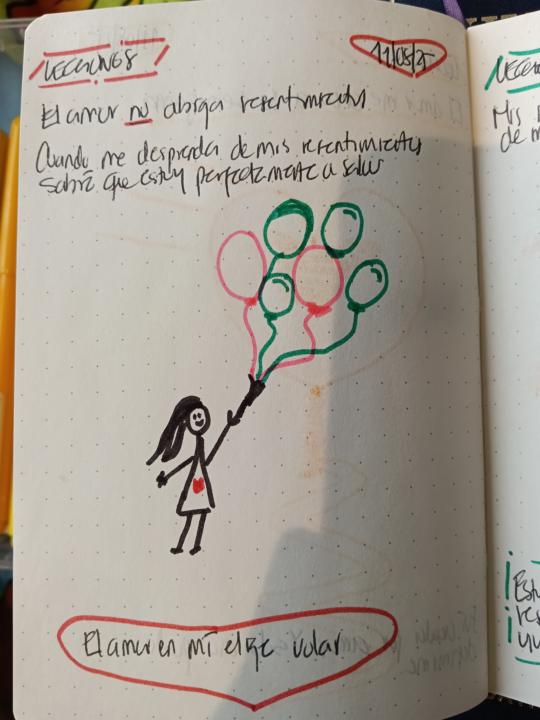 LECCIONES
11/05/25
El amor no abriga resentimientos
Cuando me desprenda de mis resentimientos
sabré que estoy perfectamente a salvo
El amor en mí elige volar
Mis
de m
¡Est
res
¡